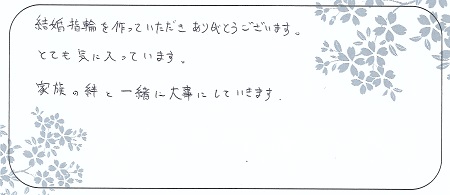 結婚指輪を作っていただきありがとうございます。
とても気に入っています。
家族の絆と一緒に大事にしていきます.